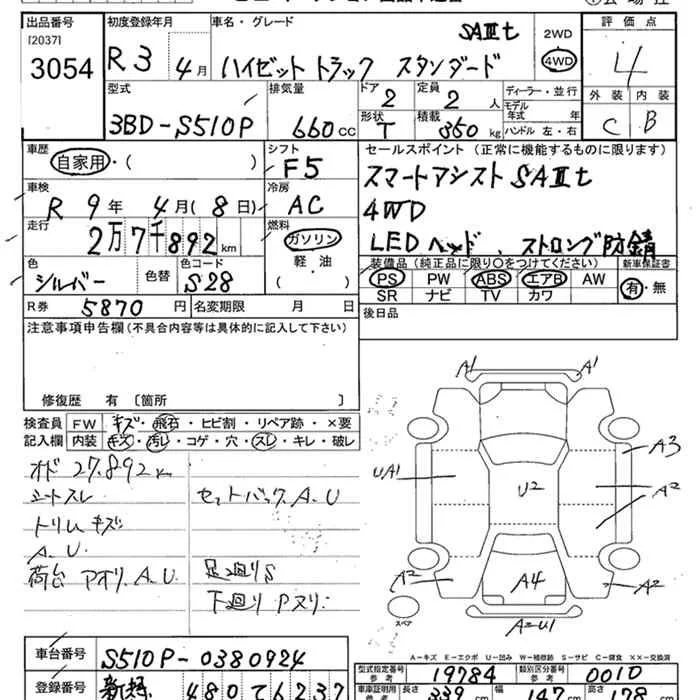 出品番号 初度登録年月 車名・グレード SAⅢt 2WD 評価点
[2037]
3054 R3 年 4月 ハイゼット トラック スタンダード 4WD 4
型式 排気量 ドア 2 定員 2人 ディーラー・並行 外装 内装
3BD-S510P 660cc 形状 T 積載 350kg モデル年式 年 ハンドル 左・右 C B
車歴 自家用・( ) シフト F5 セールスポイント(正常に機能するものに限ります)
車検 R 9年 4月(8日) 冷房 AC スマートアシスト SAⅢt
走行 2万7千892km 燃料 ガソリン 軽油 ( ) 4WD
LEDヘッド、ストロング防錆
色 シルバー 色替 色コード S28 装備品(純正品に限り○をつけてください) 新車保証書
PS PW ABS エアB AW 有・無
SR ナビ TV カワ
R券 5870円 名変期限 月 日 後日品
注意事項申告欄(不具合内容等は具体的に記入して下さい)
修復歴 有〔箇所 〕
検査員 FW キズ・飛石・ヒビ割・リペア跡・×要
記入欄 内装 キズ・汚レ・コゲ・穴・スレ・キレ・破レ
オド 27.892km
シートスレ セットバックA.U
トリムキズ
A.U.
荷台 アオリ.A.U 足廻りS
下廻り Pヌリ:
A1 A1
UA1 U2 A3
A2
A2 A4 A2
スペア A2U1
A-キズ E-エクボ U-凹み W-補修跡 S-サビ C-腐食 ××-交換済
車台番号 S510P-0380924
型式指定番号 参考 19784 類別区分番号 参考 0010
登録番号 480 て 6237
長さ 339cm 幅 147cm 高さ 178cm